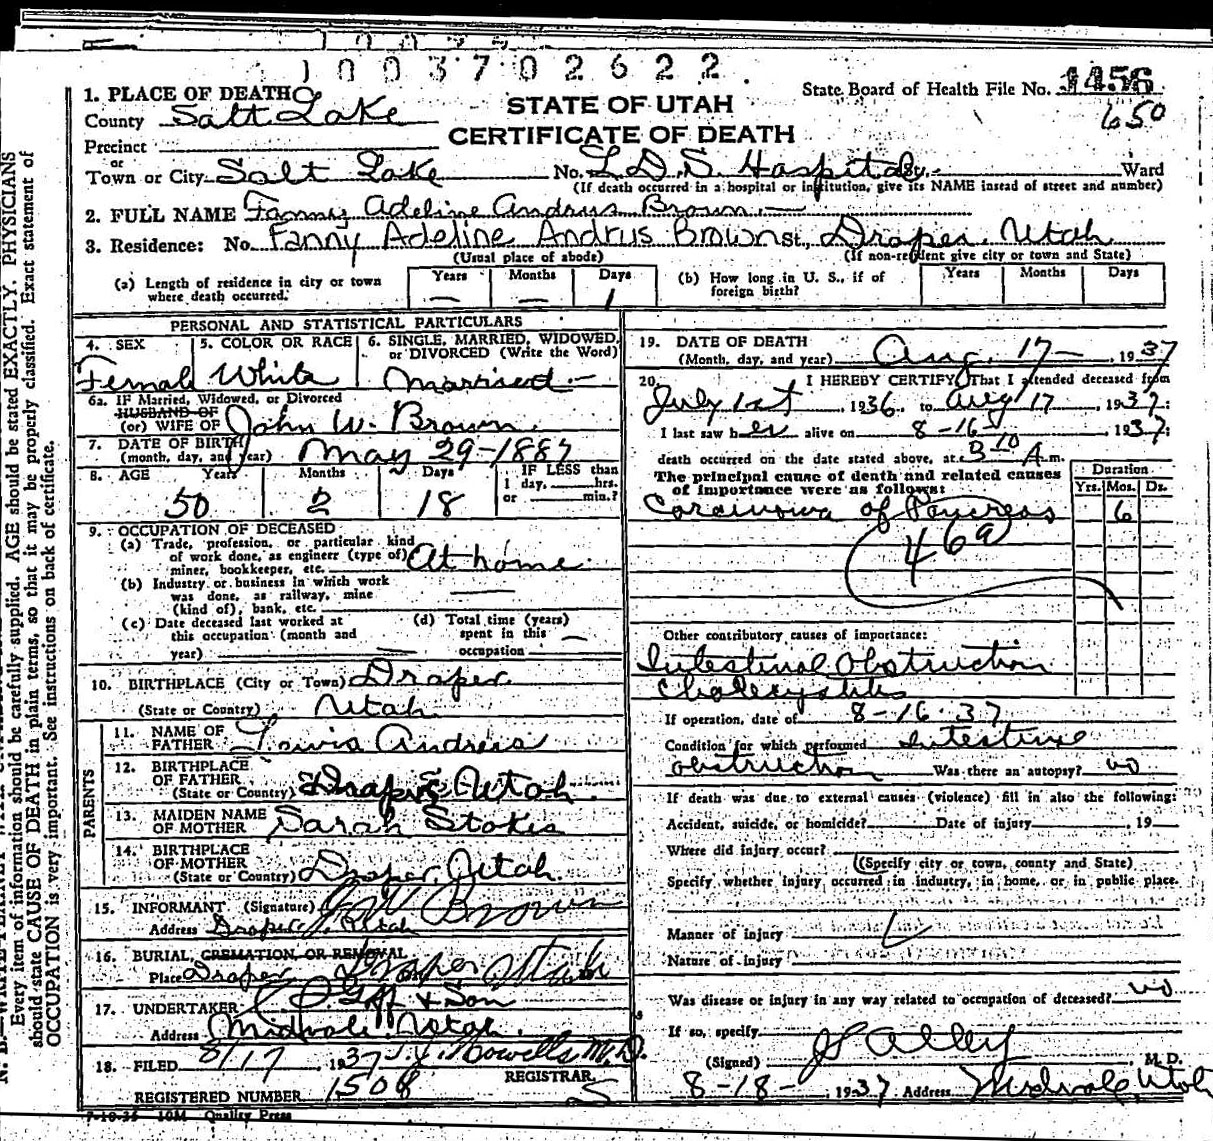 1003702622
1. PLACE OF DEATH
STATE OF UTAH
CERTIFICATE OF DEATH
State Board of Health File No. 1456
650
County Salt Lake
Precinct
or
Town or City Salt Lake No. L.D.S. Hospital Ward
(If death occurred in a hospital or institution, give its NAME insead of street and number)
2. FULL NAME Fanny Adeline Andrus Brown
3. Residence: No. Fanny Adeline Andrus Brown St., Draper, Utah
(Usual place of abode) (If non-resident give city or town and State)
(a) Length of residence in city or town where death occurred. Years — Months — Days 1
(b) How long in U. S., if of foreign birth? Years Months Days
PERSONAL AND STATISTICAL PARTICULARS
4. SEX Female
5. COLOR OR RACE White
6. SINGLE, MARRIED, WIDOWED, or DIVORCED (Write the Word) Married
6a. IF Married, Widowed, or Divorced
HUSBAND OF
(or) WIFE OF John W. Brown
7. DATE OF BIRTH
(month, day, and year) May 29-1887
8. AGE Years 50 Months 2 Days 18 IF LESS than 1 day, hrs. or min.?
9. OCCUPATION OF DECEASED
(a) Trade, profession, or particular kind
of work done, as engineer (type of)
miner, bookkeeper, etc. At home
(b) Industry or business in which work
was done, as railway, mine
(kind of), bank, etc.
(c) Date deceased last worked at
this occupation (month and
year)
(d) Total time (years)
spent in this
occupation
10. BIRTHPLACE (City or Town) Draper
(State or Country) Utah
PARENTS
11. NAME OF FATHER
12. BIRTHPLACE
OF FATHER
(State or Country) Draper Utah
13. MAIDEN NAME
OF MOTHER Sarah Stokes
14. BIRTHPLACE
OF MOTHER
(State or Country) Draper, Utah
15. INFORMANT (Signature) J W Brown
Address Draper, Utah
16. BURIAL, CREMATION, OR REMOVAL
Place Draper Draper Utah
17. UNDERTAKER Goff & Son
Address Midvale Utah.
18. FILED 8/17 1937
REGISTRAR
REGISTERED NUMBER 1508
7-10-35 10M Quality Press
19. DATE OF DEATH
(Month, day, and year) Aug. 17 — , 1937
20. I HEREBY CERTIFY, That I attended deceased from
July 1st, 1936, to Aug 17, 1937;
I last saw her alive on 8-16, 1937;
death occurred on the date stated above, at 3 10 A.m.
The principal cause of death and related causes
of importance were as follows: Duration
Yrs. Mos. Ds.
Carcinoma of Pancreas 6
46a
Other contributory causes of importance:
Intestinal Obstruction
Cholecystitis
If operation, date of 8-16-37
Condition for which performed Intestine
obstruction Was there an autopsy? no
If death was due to external causes (violence) fill in also the following:
Accident, suicide, or homicide? Date of injury , 19
Where did injury occur?
(Specify city or town, county and State)
Specify whether injury occurred in industry, in home, or in public place.
Manner of injury
Nature of injury
Was disease or injury in any way related to occupation of deceased? no
If so, specify
(Signed) Alley , M. D.
8-18- 1937 Address Midvale, Utah
Every item of information should be carefully supplied. AGE should be stated EXACTLY. PHYSICIANS
should state CAUSE OF DEATH in plain terms, so that it may be properly classified. Exact statement of
OCCUPATION is very important. See instructions on back of certificate.